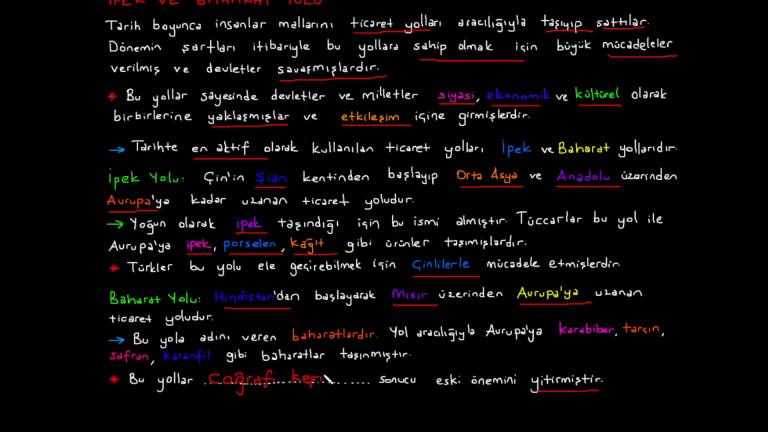 İPEK VE BAHARAT YOLU
Tarih boyunca insanlar mallarını ticaret yolları aracılığıyla taşıyıp sattılar.
Dönemin şartları itibariyle bu yollara sahip olmak için büyük mücadeleler
verilmiş ve devletler savaşmışlardır.
* Bu yollar sayesinde devletler ve milletler siyasi, ekonomik ve kültürel olarak
birbirlerine yaklaşmışlar ve etkileşim içine girmişlerdir.
→ Tarihte en aktif olarak kullanılan ticaret yolları İpek ve Baharat yollarıdır.
İpek Yolu: Çin'in Şian kentinden başlayıp Orta Asya ve Anadolu üzerinden
Avrupa'ya kadar uzanan ticaret yoludur.
→ Yoğun olarak ipek taşındığı için bu ismi almıştır. Tüccarlar bu yol ile
Avrupa'ya ipek, porselen, kağıt gibi ürünler taşımışlardır.
* Türkler bu yolu ele geçirebilmek için Çinlilerle mücadele etmişlerdir.
Baharat Yolu: Hindistan'dan başlayarak Mısır üzerinden Avrupa'ya uzanan
ticaret yoludur.
→ Bu yola adını veren baharatlardır. Yol aracılığıyla Avrupa'ya karabiber, tarçın,
safran, karanfil gibi baharatlar taşınmıştır.
* Bu yollar ... Coğrafi keş ... sonucu eski önemini yitirmiştir.